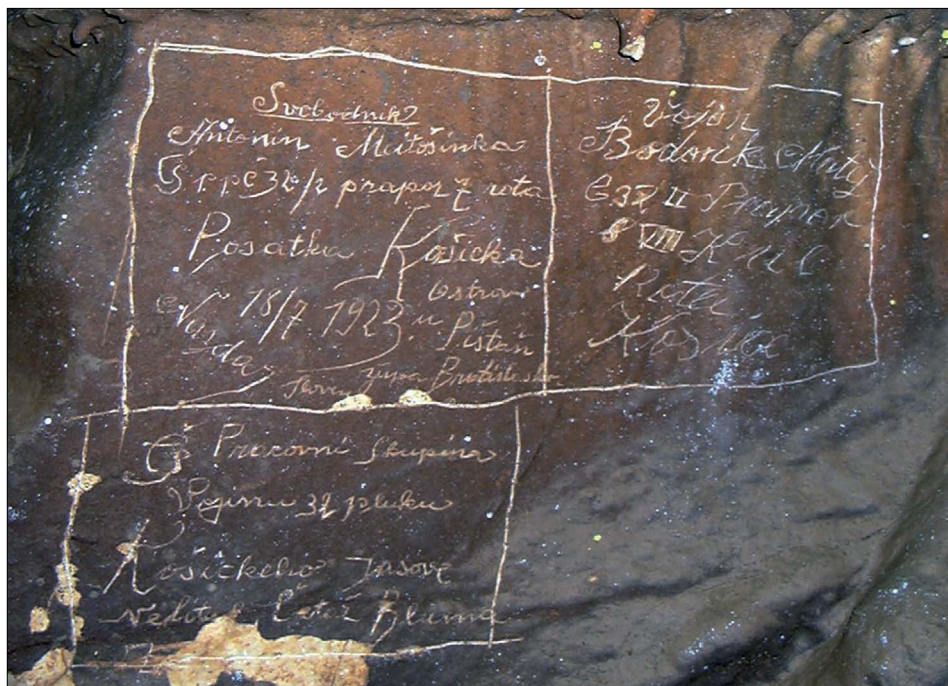 Svobodník
Antonin Matošinka
Čs pěš 32/2 prapor 7 rota
Posatka Košicka
18/7 1923
Ostrov
u Pištán
župa Bratislavska
Vojin
Bodorik Matij
Čs 32 II Prapor
8 VIII Kul
Rota
Košice
Čs Pracovní Skupina
Vojinu 32 pluku
Košickeho Jasove
Velitel Četař Bluma